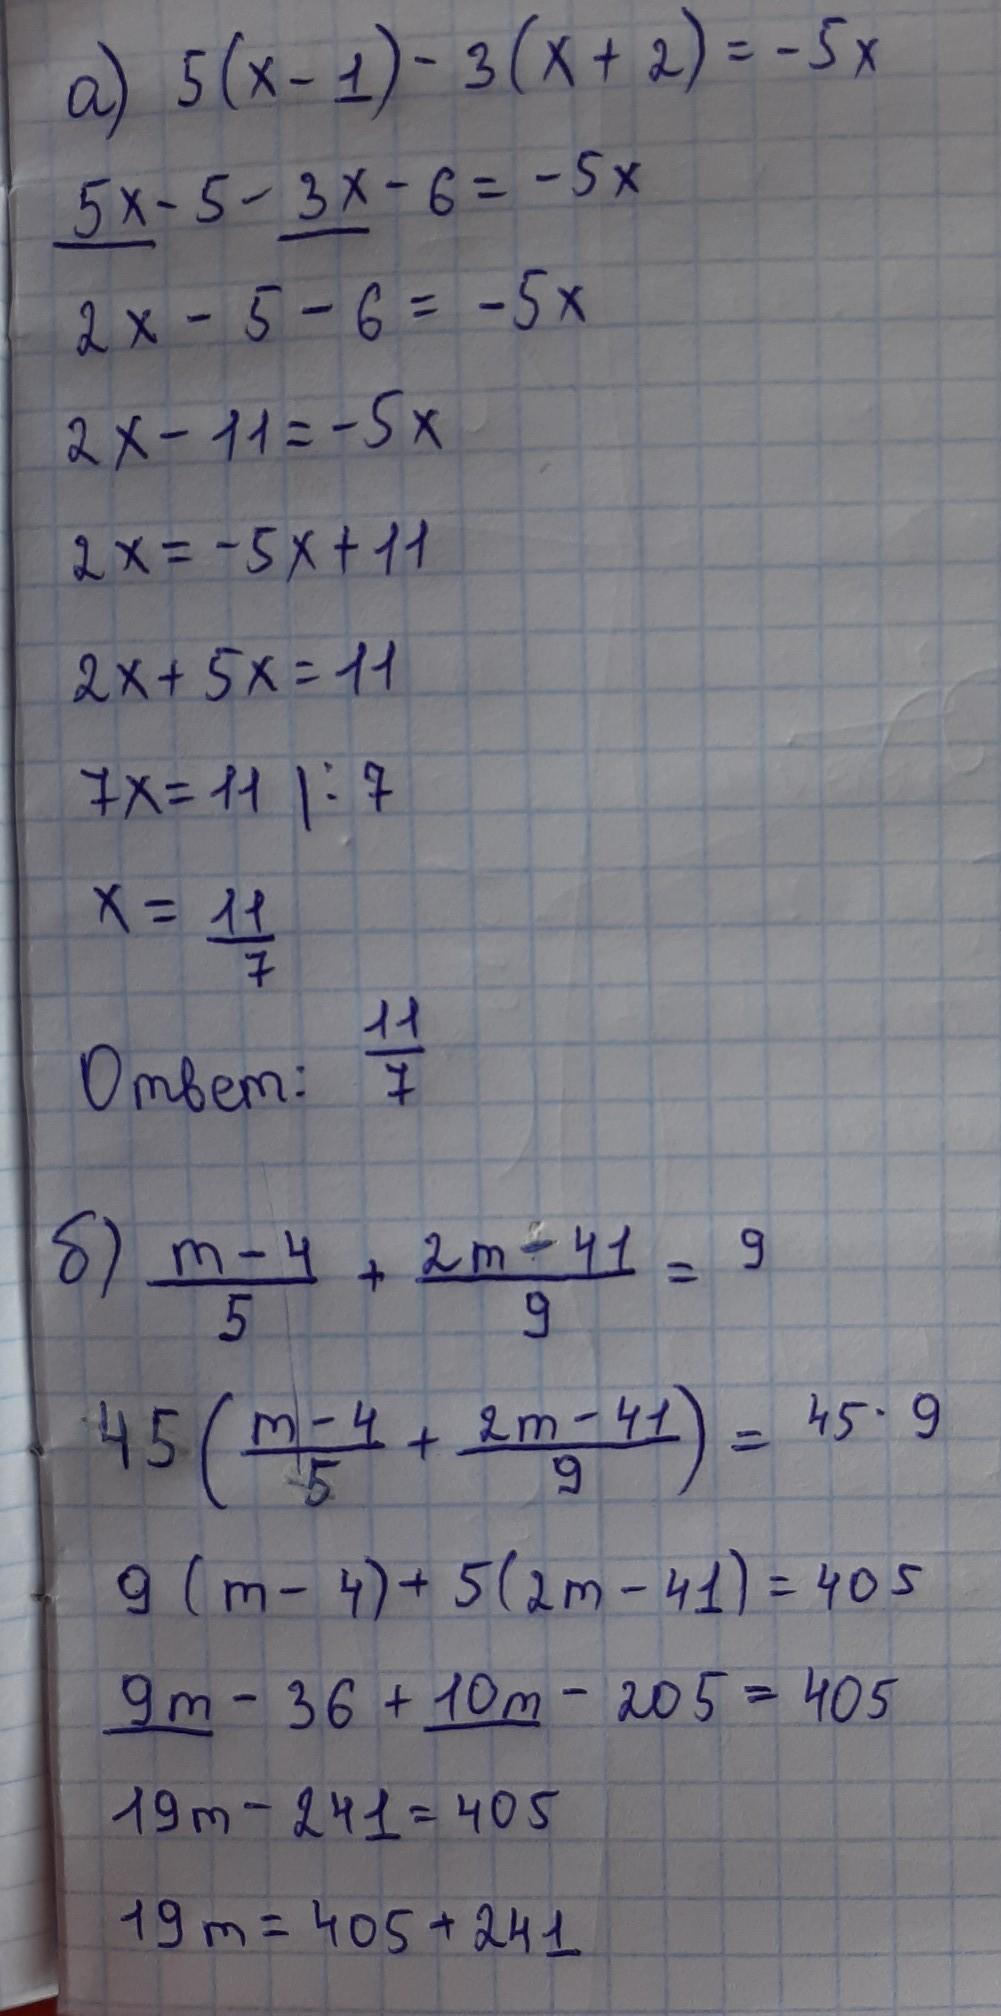 а) 5(x - 1) - 3(x + 2) = -5x
5x - 5 - 3x - 6 = -5x
2x - 5 - 6 = -5x
2x - 11 = -5x
2x = -5x + 11
2x + 5x = 11
7x = 11 |: 7
x = 11/7
Ответ: 11/7
б) (m - 4)/5 + (2m - 41)/9 = 9
45((m - 4)/5 + (2m - 41)/9) = 45 · 9
9(m - 4) + 5(2m - 41) = 405
9m - 36 + 10m - 205 = 405
19m - 241 = 405
19m = 405 + 241